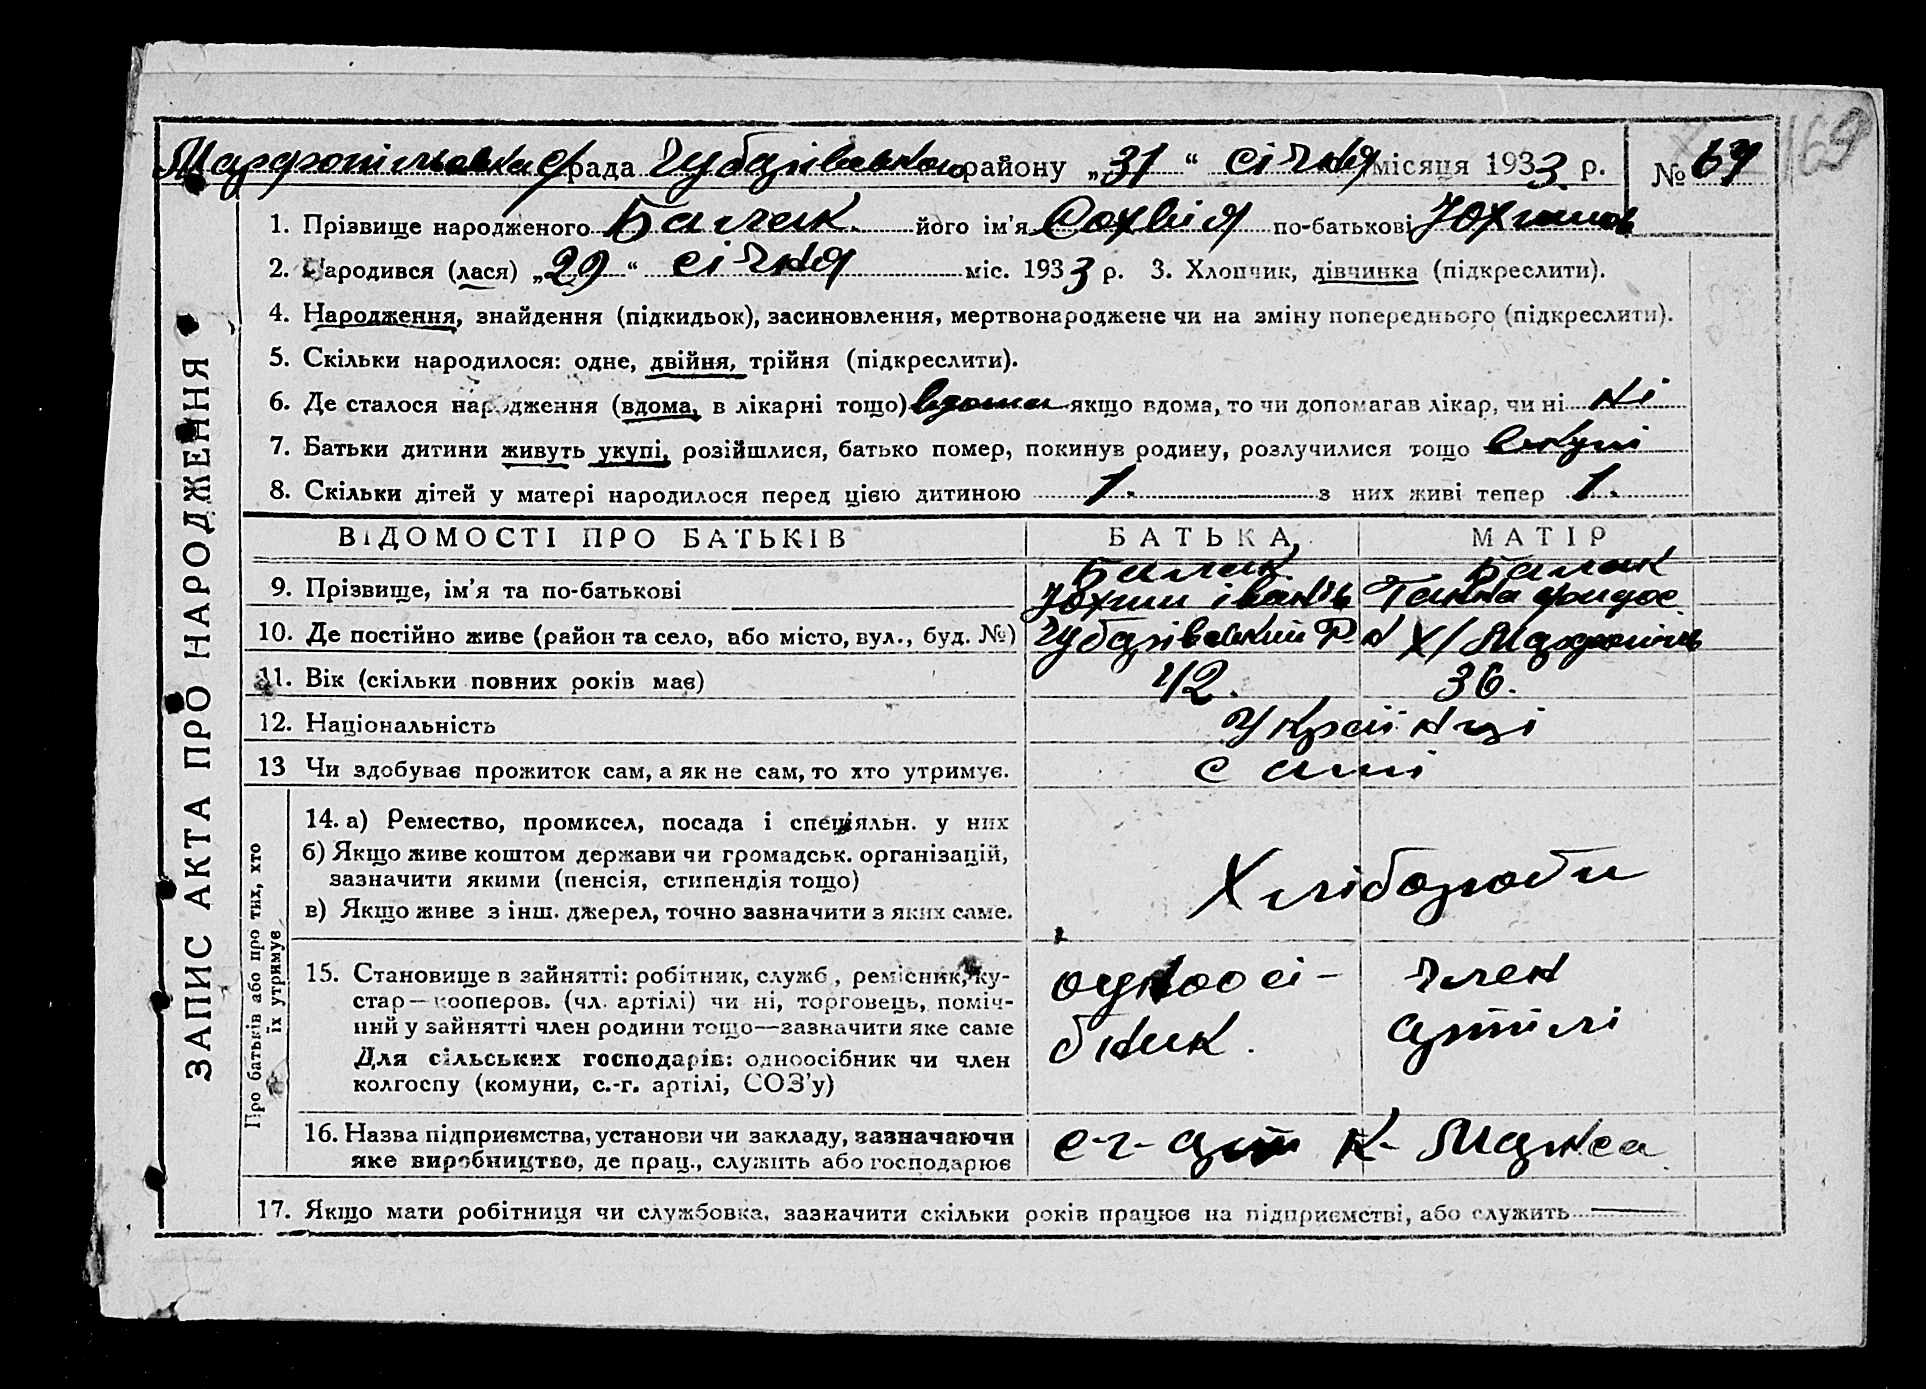 169
Марфопільська с/рада Чубарівського району „31“ січня місяця 1933 р. № 69
ЗАПИС АКТА ПРО НАРОДЖЕННЯ
1. Прізвище народженого Балак його ім'я Сохвія по-батькові Юхимов
2. Народився (лася) „29“ січня міс. 1933 р. 3. Хлопчик, дівчинка (підкреслити).
4. Народження, знайдення (підкидьок), засиновлення, мертвонароджене чи на зміну попереднього (підкреслити).
5. Скільки народилося: одне, двійня, трійня (підкреслити).
6. Де сталося народження (вдома, в лікарні тощо) вдома якщо вдома, то чи допомагав лікар, чи ні ні
7. Батьки дитини живуть укупі, розійшлися, батько помер, покинув родину, розлучилися тощо вкупі
8. Скільки дітей у матері народилося перед цією дитиною 1. з них живі тепер 1.
ВІДОМОСТІ ПРО БАТЬКІВ БАТЬКА МАТІР
Балак Балак
9. Прізвище, ім'я та по-батькові Юхим Іванів Ганна
10. Де постійно живе (район та село, або місто, вул., буд. №) Чубарівський Р-н Х/Марфопіль
11. Вік (скільки повних років має) 42. 36.
12. Національність Українці
13 Чи здобуває прожиток сам, а як не сам, то хто утримує. самі
Про батьків або про тих, хто
їх утримує
14. а) Ремество, промисел, посада і спеціяльн. у них
б) Якщо живе коштом держави чи громадськ. організацій,
зазначити якими (пенсія, стипендія тощо)
Хлібороби
в) Якщо живе з інш. джерел, точно зазначити з яких саме.
15. Становище в зайнятті: робітник, служб., ремісник, ку-
стар—кооперов. (чл. артілі) чи ні, торговець, поміч-
ний у зайнятті член родини тощо—зазначити яке саме
Для сільських господарів: одноосібник чи член
колгоспу (комуни, с.-г. артілі, СОЗ'у)
одноосі- член
бник. артілі
16. Назва підприємства, установи чи закладу, зазначаючи
яке виробництво, де прац., служить або господарює
с-г-арт К-Маркса
17. Якщо мати робітниця чи службовка, зазначити скільки років працює на підприємстві, або служить —